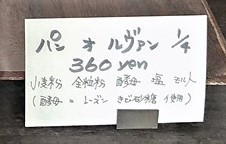 パン オ ルヴァン 1/4
360 yen
小麦粉 全粒粉 酵母 塩 モルト
(酵母 = レーズン きび砂糖 使用)